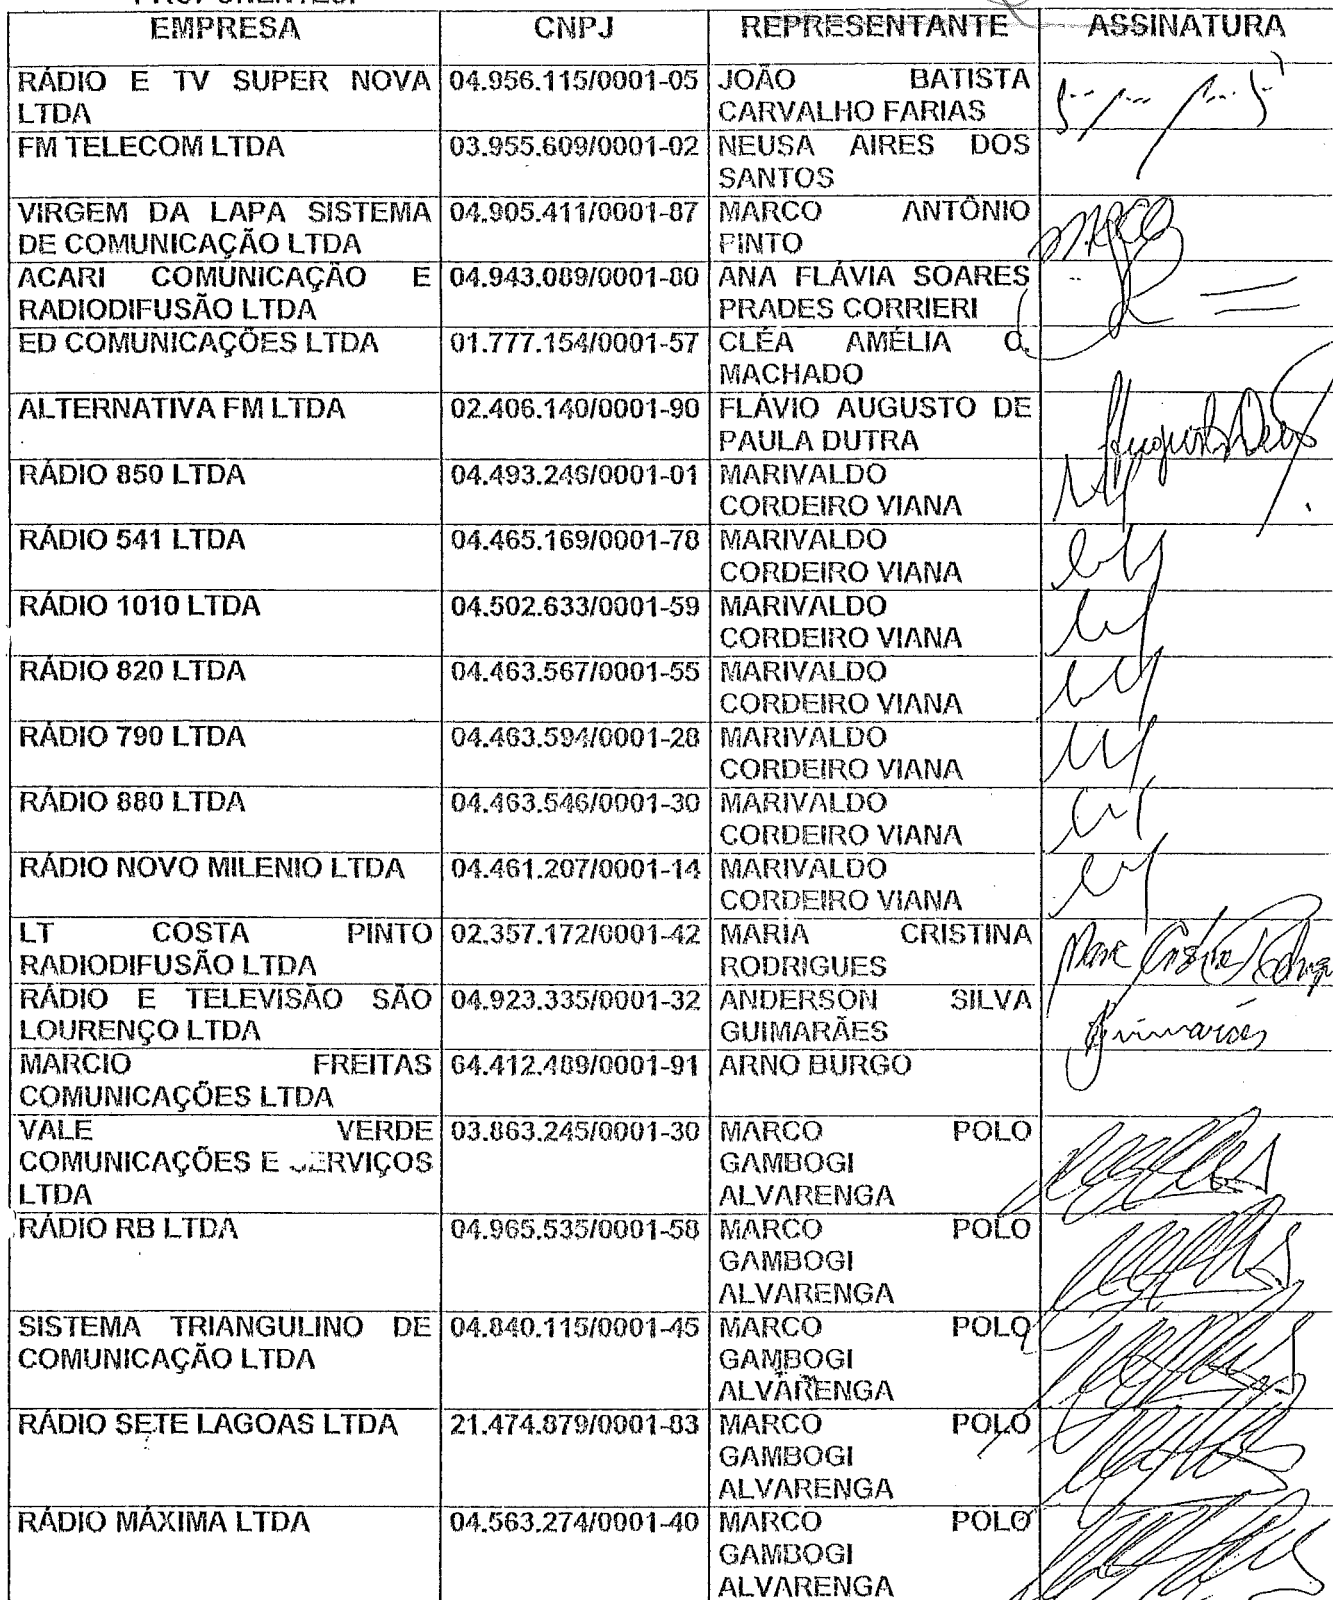 EMPRESA CNPJ REPRESENTANTE ASSINATURA
RÁDIO E TV SUPER NOVA 04.956.115/0001-05 JOÃO BATISTA
LTDA CARVALHO FARIAS
FM TELECOM LTDA 03.955.609/0001-02 NEUSA AIRES DOS
SANTOS
VIRGEM DA LAPA SISTEMA 04.905.411/0001-87 MARCO ANTÔNIO
DE COMUNICAÇÃO LTDA PINTO
ACARI COMUNICAÇÃO E 04.943.089/0001-80 ANA FLÁVIA SOARES
RADIODIFUSÃO LTDA PRADES CORRIERI
ED COMUNICAÇÕES LTDA 01.777.154/0001-57 CLÉA AMÉLIA
MACHADO
ALTERNATIVA FM LTDA 02.406.140/0001-90 FLÁVIO AUGUSTO DE
PAULA DUTRA
RÁDIO 850 LTDA 04.493.246/0001-01 MARIVALDO
CORDEIRO VIANA
RÁDIO 541 LTDA 04.465.169/0001-78 MARIVALDO
CORDEIRO VIANA
RÁDIO 1010 LTDA 04.502.633/0001-59 MARIVALDO
CORDEIRO VIANA
RÁDIO 820 LTDA 04.463.567/0001-55 MARIVALDO
CORDEIRO VIANA
RÁDIO 790 LTDA 04.463.594/0001-28 MARIVALDO
CORDEIRO VIANA
RÁDIO 880 LTDA 04.463.546/0001-30 MARIVALDO
CORDEIRO VIANA
RÁDIO NOVO MILENIO LTDA 04.461.207/0001-14 MARIVALDO
CORDEIRO VIANA
LT COSTA PINTO 02.357.172/0001-42 MARIA CRISTINA
RADIODIFUSÃO LTDA RODRIGUES
RÁDIO E TELEVISÃO SÃO 04.923.335/0001-32 ANDERSON SILVA
LOURENÇO LTDA GUIMARÃES Guimarães
MARCIO FREITAS 64.412.489/0001-91 ARNO BURGO
COMUNICAÇÕES LTDA
VALE VERDE 03.863.245/0001-30 MARCO POLO
COMUNICAÇÕES E SERVIÇOS GAMBOGI
LTDA ALVARENGA
RÁDIO RB LTDA 04.965.535/0001-58 MARCO POLO
GAMBOGI
ALVARENGA
SISTEMA TRIANGULINO DE 04.840.115/0001-45 MARCO POLO
COMUNICAÇÃO LTDA GAMBOGI
ALVARENGA
RÁDIO SETE LAGOAS LTDA 21.474.879/0001-83 MARCO POLO
GAMBOGI
ALVARENGA
RÁDIO MÁXIMA LTDA 04.563.274/0001-40 MARCO POLO
GAMBOGI
ALVARENGA